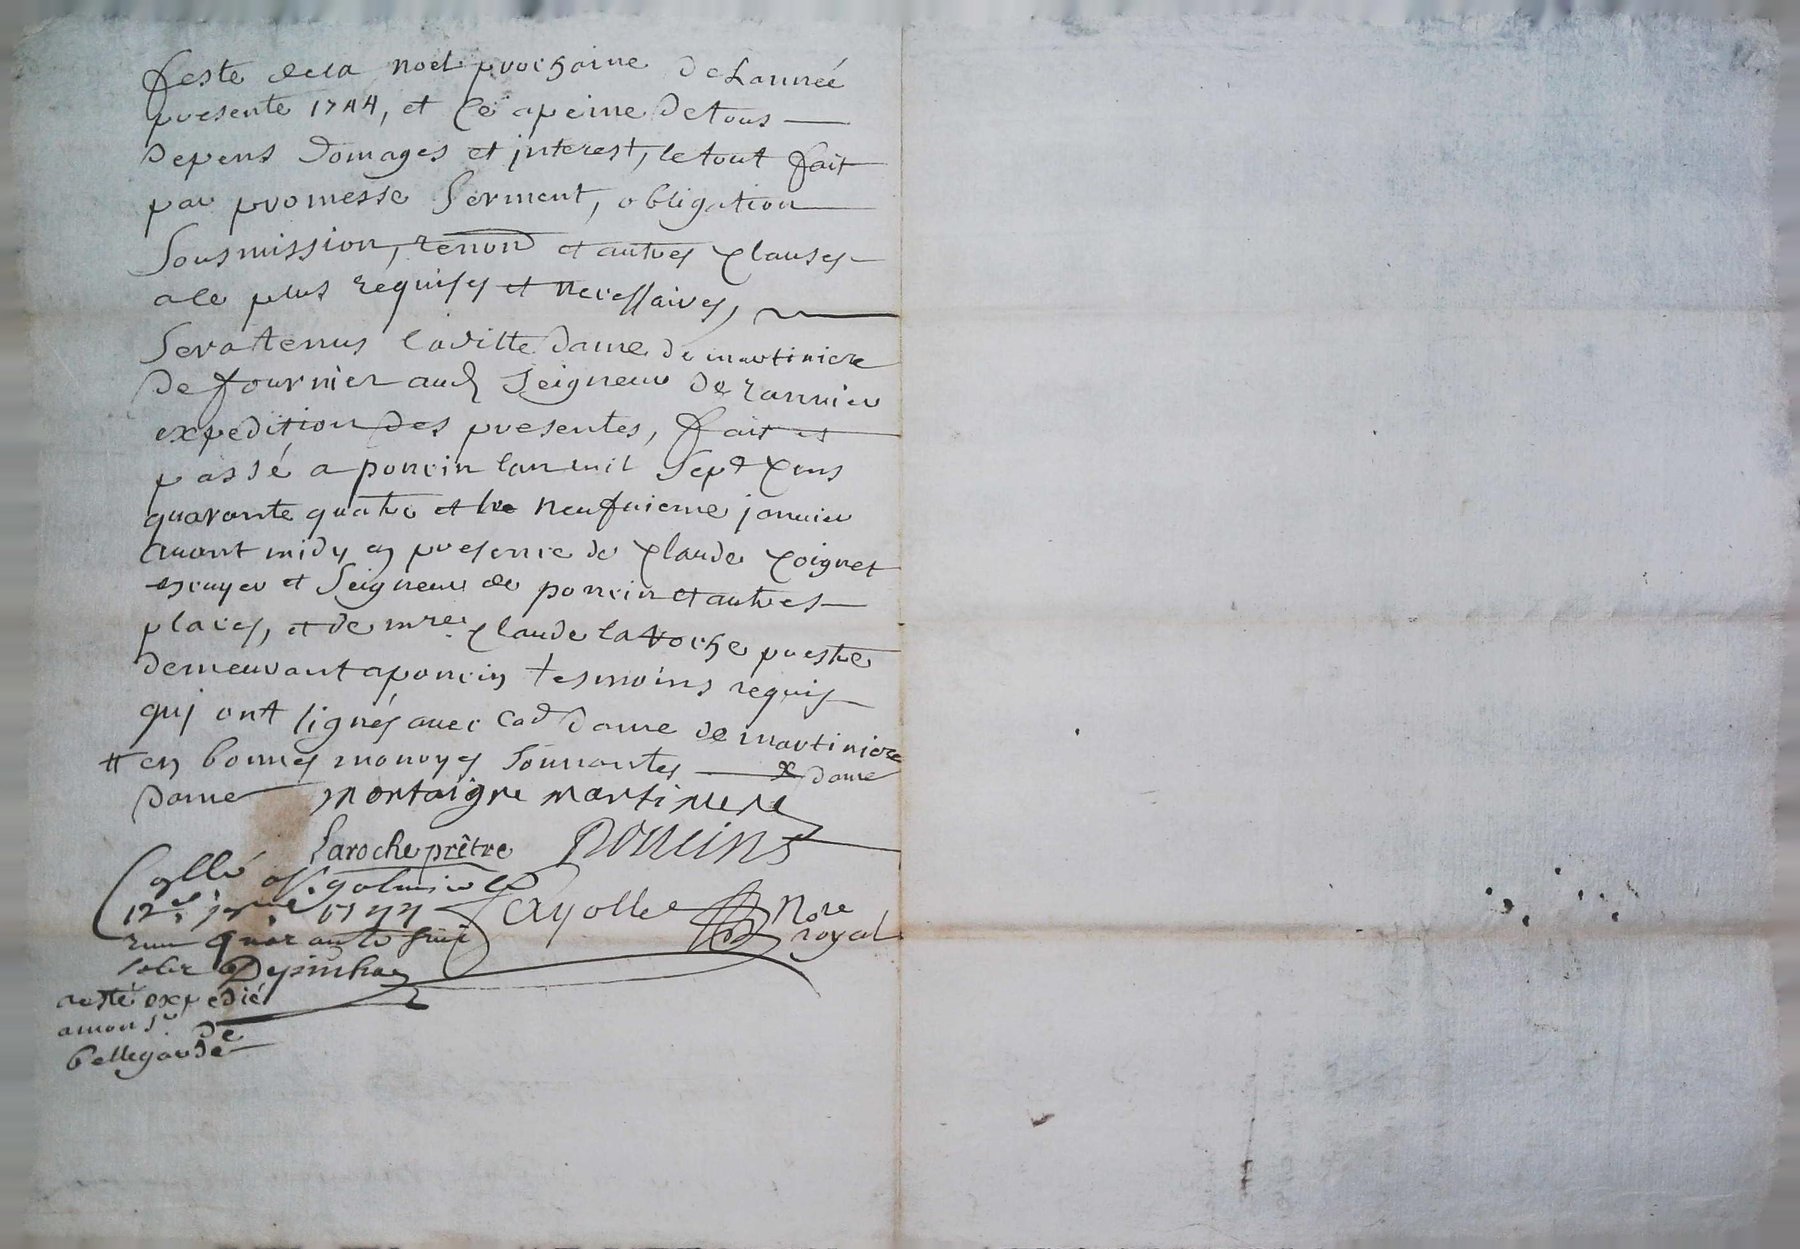 feste de la noel prochaine de Lanneé
presente 1744, et ce a peine de tous
depens domages et jnterest, le tout fait
par promesse serment, obligation
Sousmission, renon et autres clauses
a ce plus requises et necessaires,
Sera tenus laditte dame de martiniere
de fournier aud Seigneur de rannier
expedition des presentes, fait et
passé a poncin lan mil sept cens
quarante quatre et le neufuieme januier
auant midy en presence de claude coignet
escuyer et Seigneur de poncin et autres
places, et de mre. claude laroche prestre
demeurant a poncin tesmoins requis
quj ont signés auec lad dame de martiniere
# en bonnes monoyes sonnantes x dame
dame montaigne martiniere
Laroche prêtre poncins
Collé a St. galmier le
12e 1744 Cayolle Nore
royal
quarante
solz
acsté expedié
a monsr. de
bellegarde